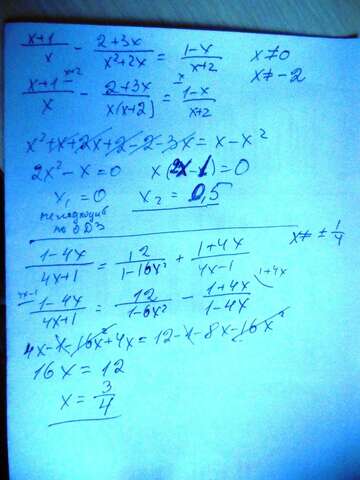 x+1/x - 2+3x/x²+2x = 1-x/x+2 x≠0
x≠-2
x+1/x x+2 - 2+3x/x(x+2) = x 1-x/x+2
x²+x+2x+2-2-3x = x-x²
2x²-x=0 x(2x-1)=0
x₁=0 x₂=0,5
не подходит
по ОДЗ
1-4x/4x+1 = 12/1-16x² + 1+4x/4x-1 x≠±1/4
4x-1 1-4x/4x+1 = 12/1-16x² - 1+4x/1-4x 1+4x
4x-1-16x²+4x=12-1-8x-16x²
16x=12
x=3/4